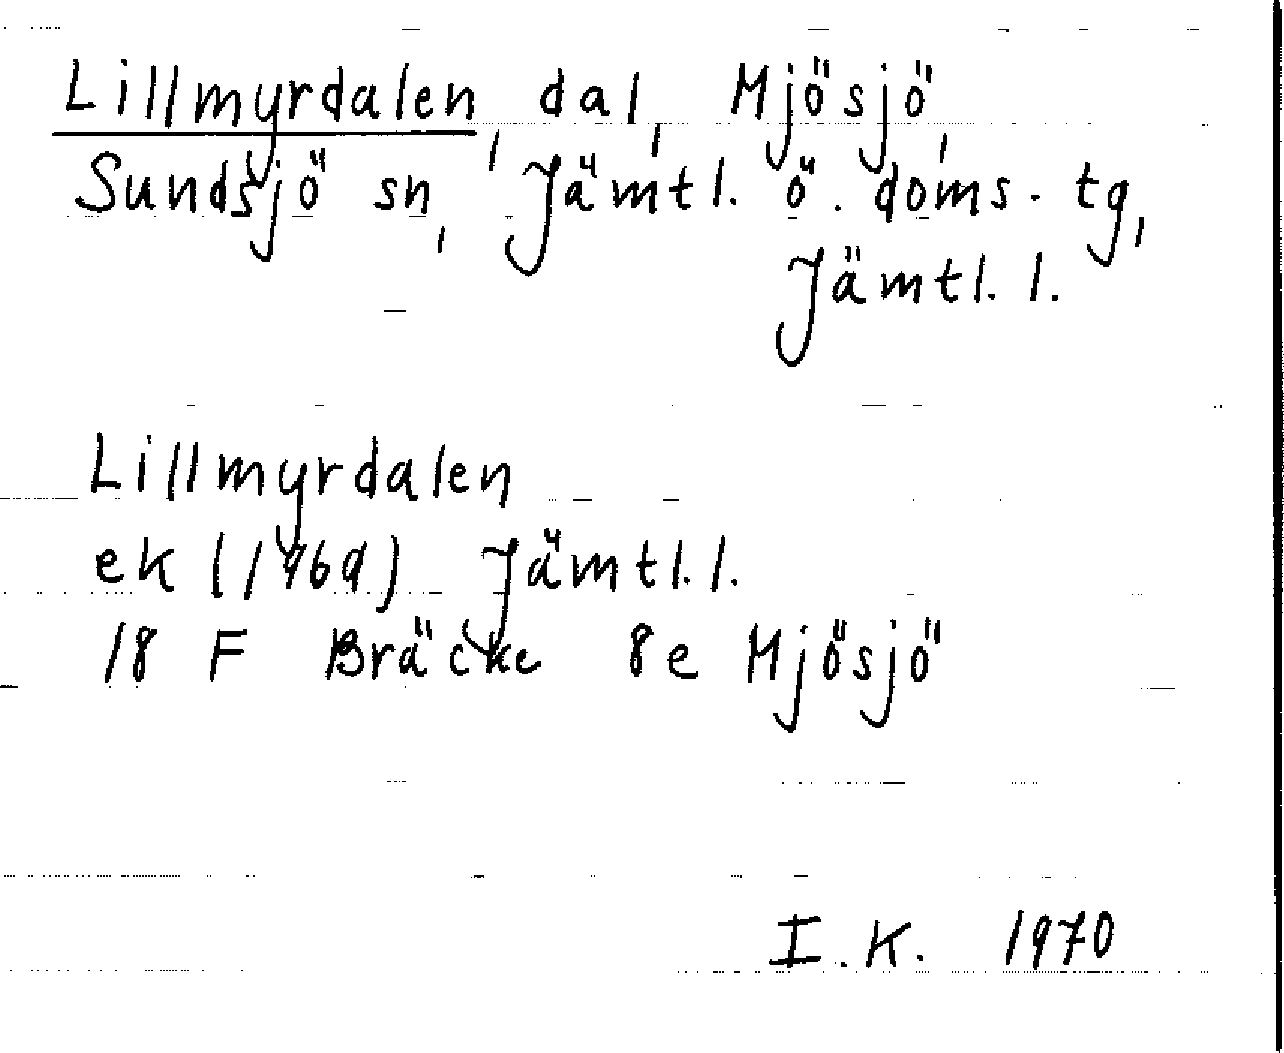 Lillmyrdalen, dal, Mjösjö,
Sundsjö sn, Jämtl. ö. doms. tg,
Jämtl. l.
Lillmyrdalen
ek (1969) Jämtl. l.
18 F Bräcke 8e Mjösjö
I. K. 1970